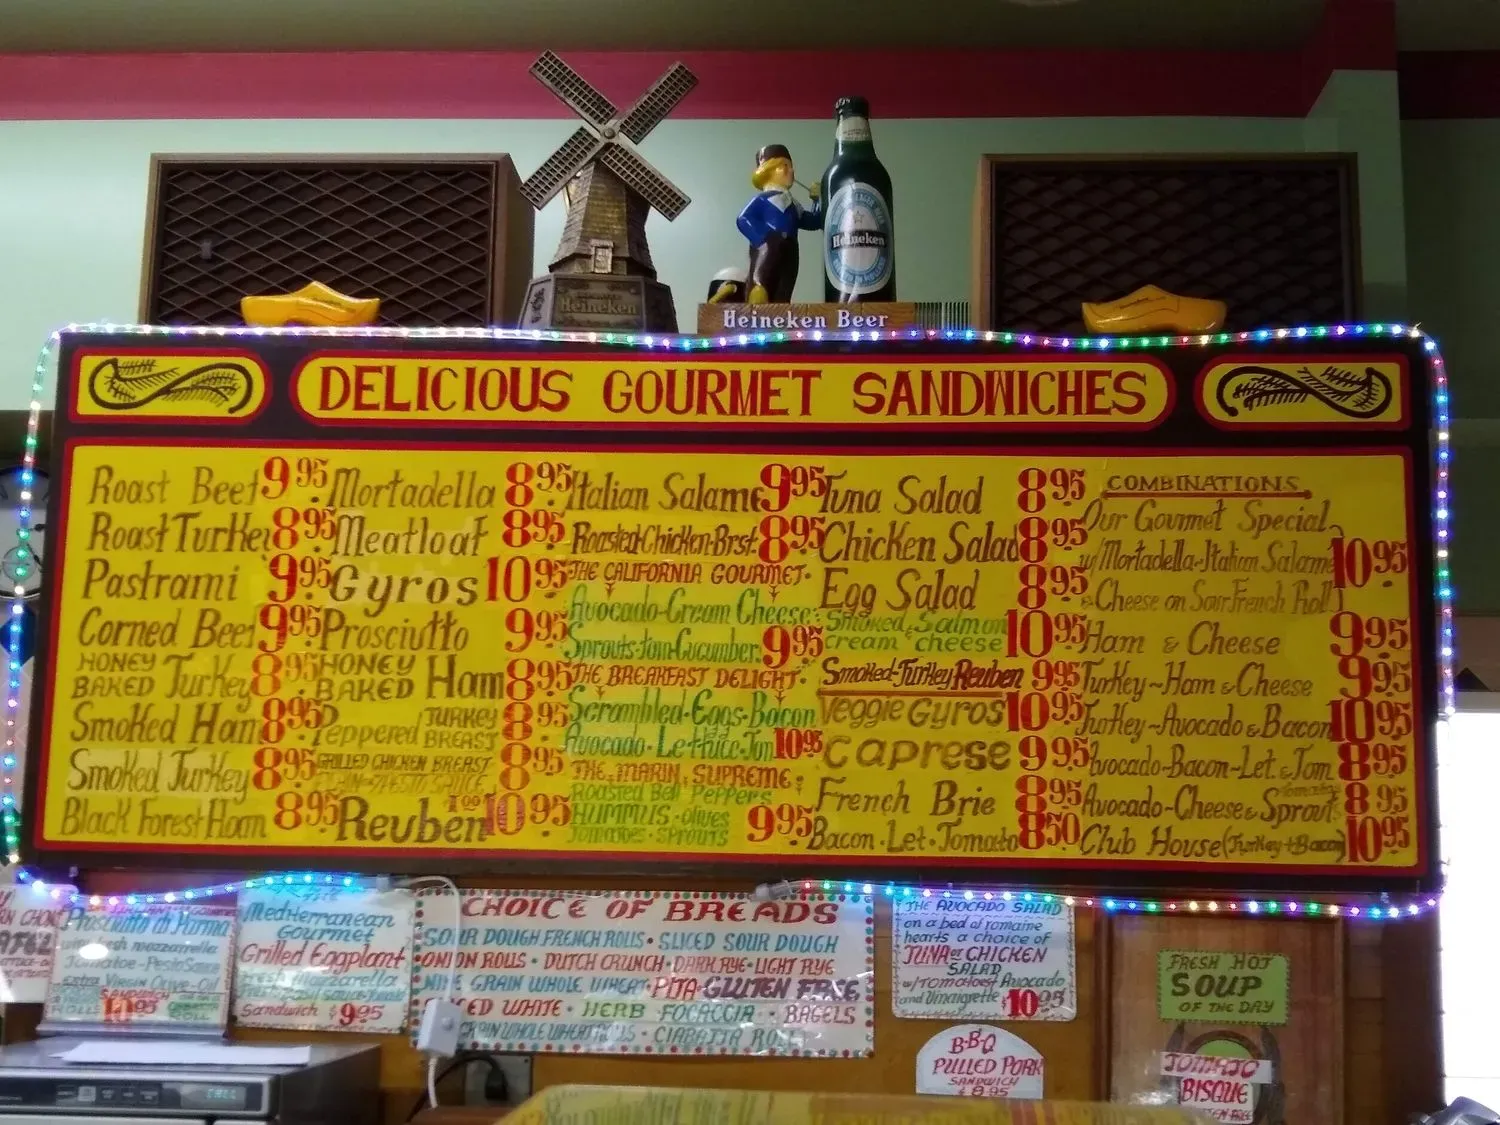 Heineken
Heineken
Heineken Beer
DELICIOUS GOURMET SANDWICHES
Roast Beef 9.95
Roast Turkey 8.95
Pastrami 9.95
Corned Beef 9.95
HONEY BAKED Turkey 8.95
Smoked Ham 8.95
Smoked Turkey 8.95
Black Forest Ham 8.95
Mortadella 8.95
Meatloaf 8.95
Gyros 10.95
Prosciutto 9.95
HONEY BAKED Ham 8.95
Peppered TURKEY BREAST 8.95
GRILLED CHICKEN BREAST
PLAIN-PESTO SAUCE 8.95
Reuben 10.95
Italian Salame 9.95
Roasted-Chicken-Brst. 8.95
THE CALIFORNIA GOURMET
Avocado-Cream Cheese
Sprouts-Tom-Cucumber 9.95
THE BREAKFAST DELIGHT
Scrambled-Eggs-Bacon
Avocado-Lettuce-Tom 10.95
THE MARIN SUPREME
Roasted Bell Peppers
HUMMUS-olives
Tomatoes-sprouts 9.95
Tuna Salad 8.95
Chicken Salad 8.95
Egg Salad 8.95
Smoked Salmon
cream cheese 10.95
Smoked-Turkey Reuben 9.95
Veggie Gyros 10.95
Caprese 9.95
French Brie 8.95
Bacon-Let-Tomato 8.50
COMBINATIONS
Our Gourmet Special
w/Mortadella-Italian Salame
& Cheese on Sour French Roll 10.95
Ham & Cheese 9.95
Turkey-Ham & Cheese 9.95
Turkey-Avocado & Bacon 10.95
Avocado-Bacon-Let. & Tom 8.95
Avocado-Cheese & Sprouts 8.95
Club House (Turkey + Bacon) 10.95
Prosciutto di Parma
fresh mozzarella
Tomatoe-Pesto Sauce
Extra Virgin Olive-Oil
Mediterranean
Gourmet
Grilled Eggplant
Fresh mozzarella
Sandwich $9.95
CHOICE OF BREADS
SOUR DOUGH FRENCH ROLLS • SLICED SOUR DOUGH
ONION ROLLS • DUTCH CRUNCH • DARK RYE • LIGHT RYE
NINE GRAIN WHOLE WHEAT • PITA • GLUTEN FREE
WHITE • HERB FOCACCIA • BAGELS
GRAIN WHOLE WHEAT ROLLS • CIABATTA ROLL
THE AVOCADO SALAD
on a bed of romaine
hearts a choice of
TUNA or CHICKEN
SALAD
w/Tomatoes Avocado
and Vinaigrette $10.95
B-B-Q
PULLED PORK
SANDWICH
$8.95
FRESH HOT
SOUP
OF THE DAY
TOMATO
BISQUE